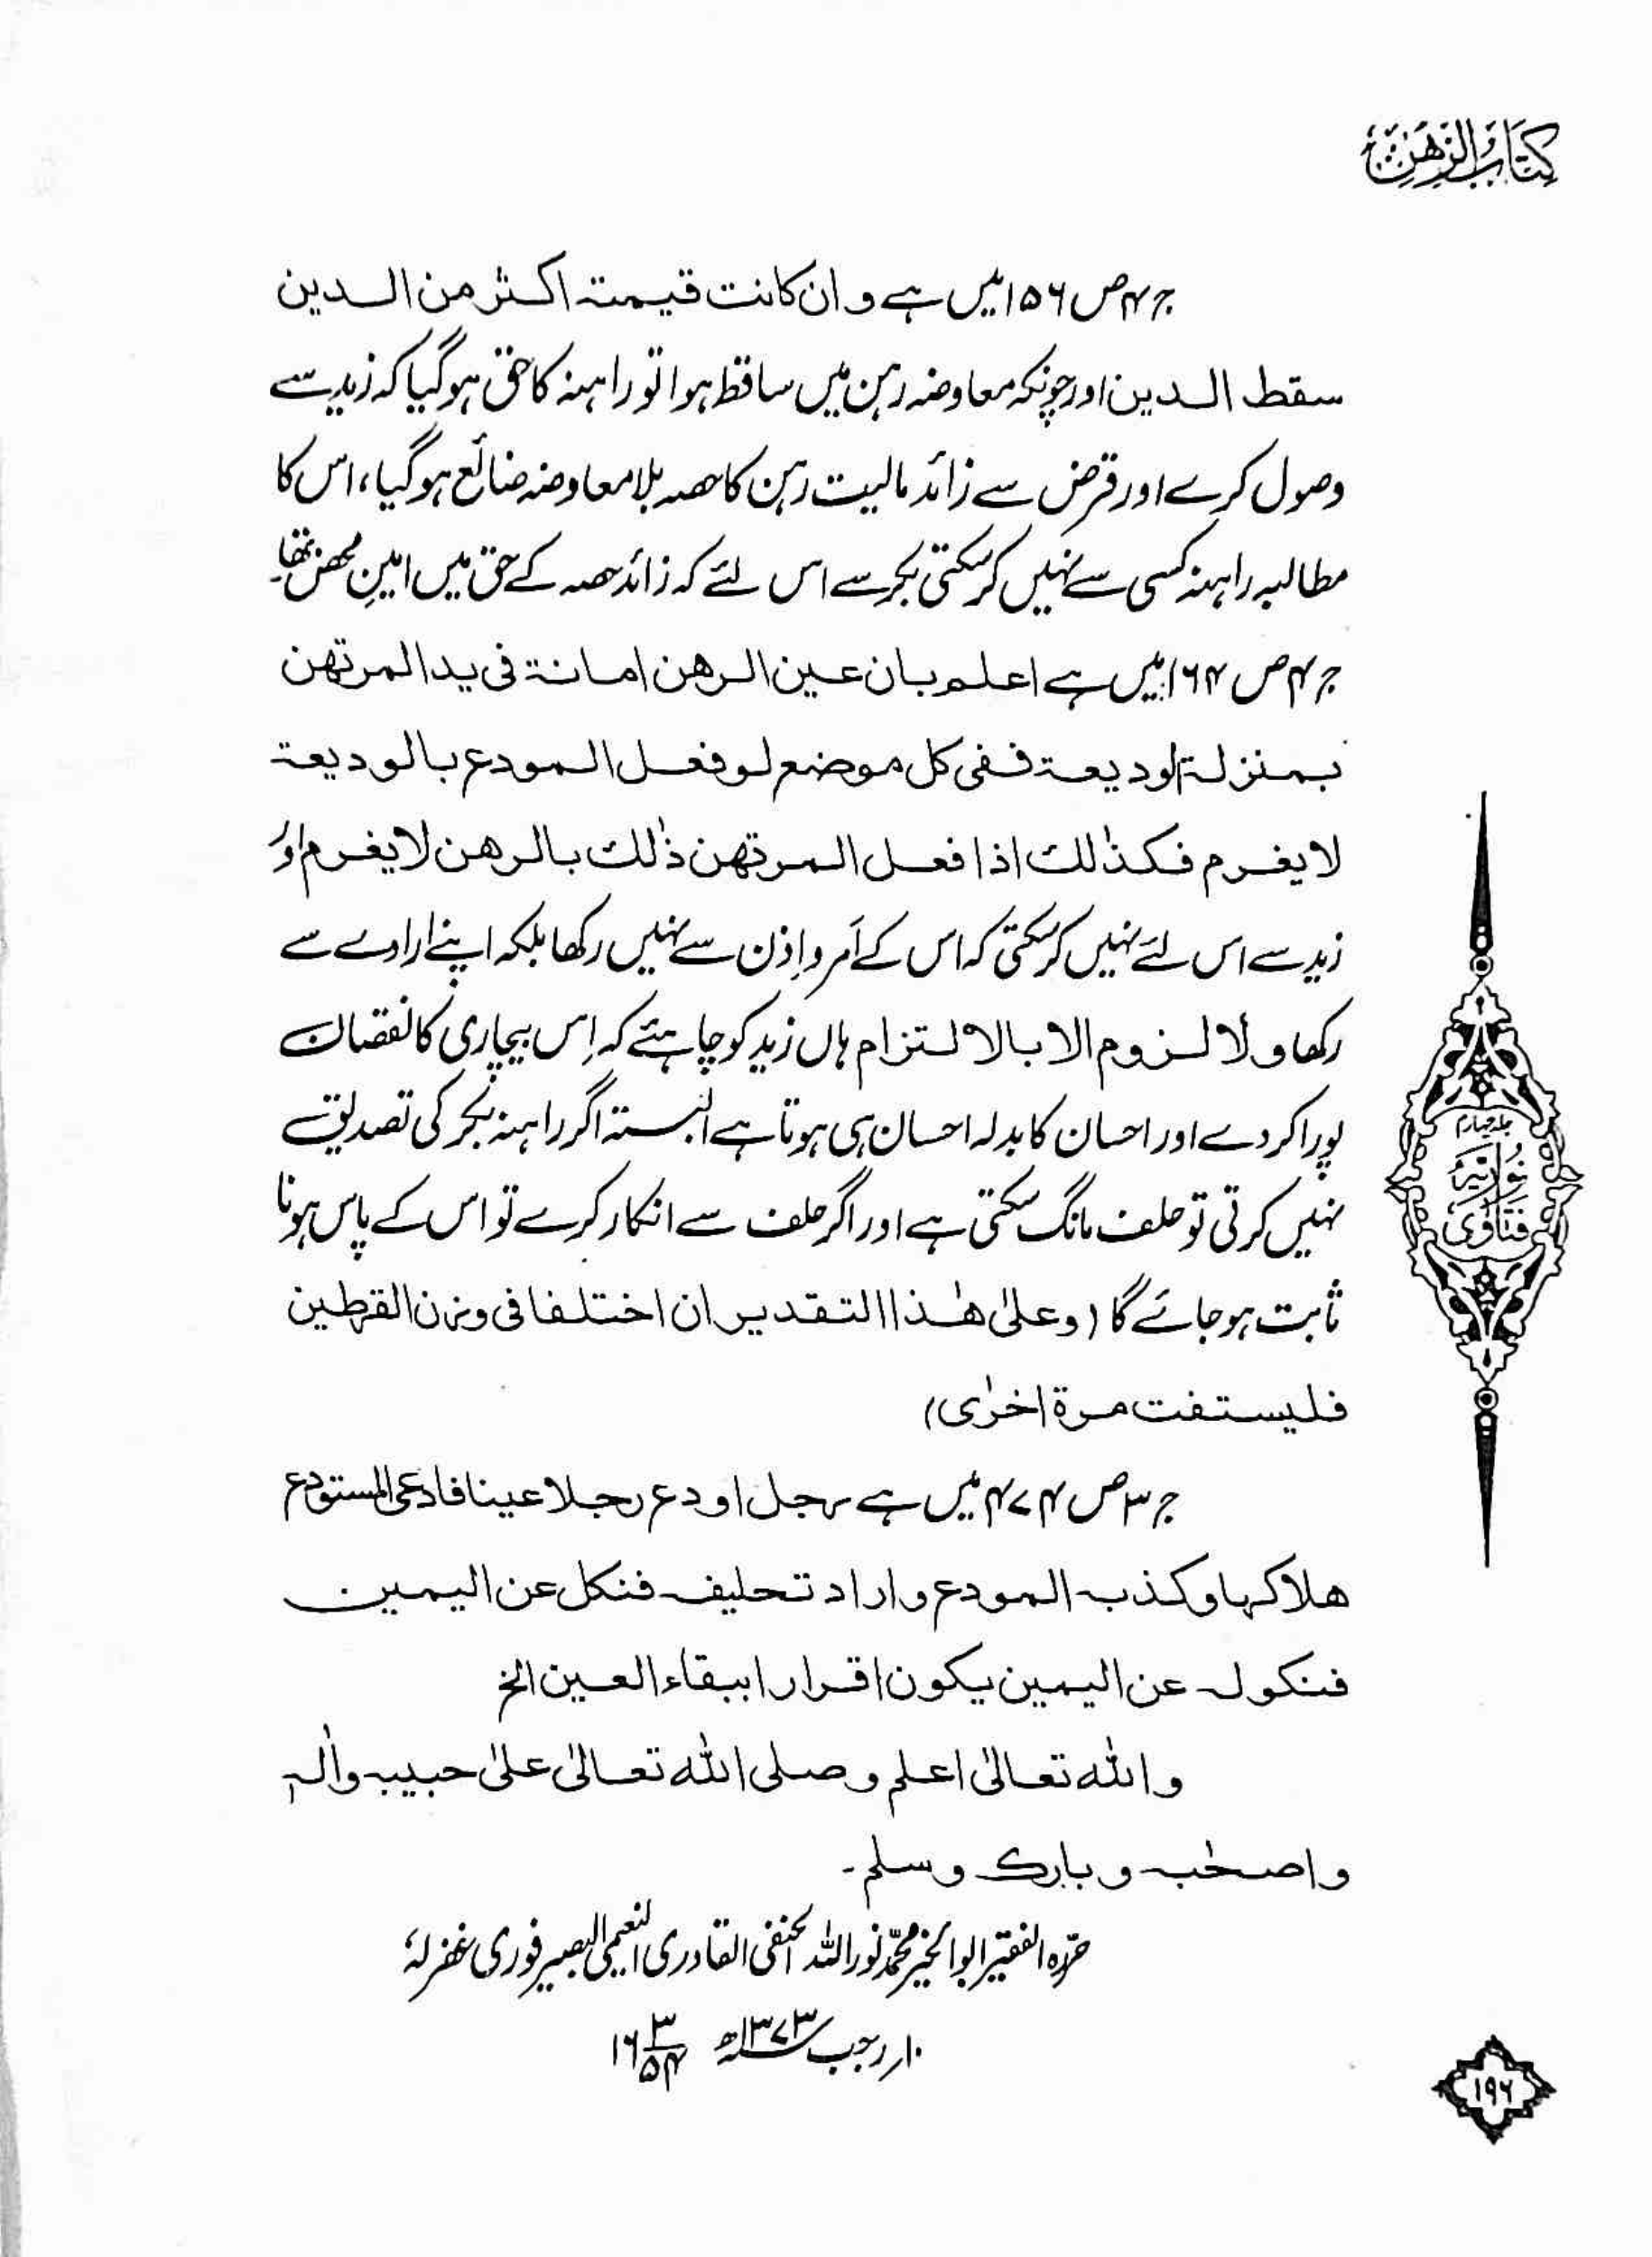 کتاب الرھن
ج ۴ ص ۱۵۶ میں ہے و ان کانت قیمتہ اکثر من الدین
سقط الدین اور چونکہ معاوضہ رہن میں ساقط ہوا تو راہنہ کا حق ہوگیا کہ زید سے
وصول کرے اور قرض سے زائد مالیت رہن کا حصہ بلا معاوضہ ضائع ہوگیا، اس کا
مطالبہ راہنہ کسی سے نہیں کرسکتی بکر سے اس لئے کہ زائد حصہ کے حق میں امینِ محض تھا۔
ج ۴ ص ۱۶۴ میں ہے اعلم بان عین الرھن امانۃ فی ید المرتھن
بمنزلۃ الودیعۃ ففی کل موضع لو فعل المودع بالودیعۃ
لا یغرم فکذٰلک اذا فعل المرتھن ذٰلک بالرھن لا یغرم اور
زید سے اس لئے نہیں کرسکتی کہ اس کے اَمر و اِذن سے نہیں رکھا بلکہ اپنے ارادے سے
رکھا و لا لزوم الا بالالتزام ہاں زید کو چاہئے کہ اِس بیچاری کا نقصان
پورا کردے اور احسان کا بدلہ احسان ہی ہوتا ہے البتہ اگر راہنہ بکر کی تصدیق
نہیں کرتی تو حلف مانگ سکتی ہے اور اگر حلف سے انکار کرے تو اس کے پاس ہونا
ثابت ہوجائے گا (وعلیٰ ھٰذا التقدیر ان اختلفا فی وزن القرطین
فلیستفت مرۃ اخرٰی)
ج ۳ ص ۴۷۴ میں ہے رجل اودع رجلا عینا فادعی المستودع
ھلاکہا و کذبہ المودع و اراد تحلیفہ فنکل عن الیمین
فنکولہ عن الیمین یکون اقرارا ببقاء العین الخ
و اللہ تعالیٰ اعلم و صلی اللہ تعالیٰ علیٰ حبیبہ واٰلہ
و اصحٰبہ و بارک و سلم۔
حرّرہ الفقیر ابو الخیر محمّد نور اللہ الحنفی القادری النعیمی البصیرفوری غفرلہٗ
۱۰ رجب ۱۳۷۳ھ ۱۶/۳/۵۴
جلد چہارم
فتاوی نوریہ
۱۹۶